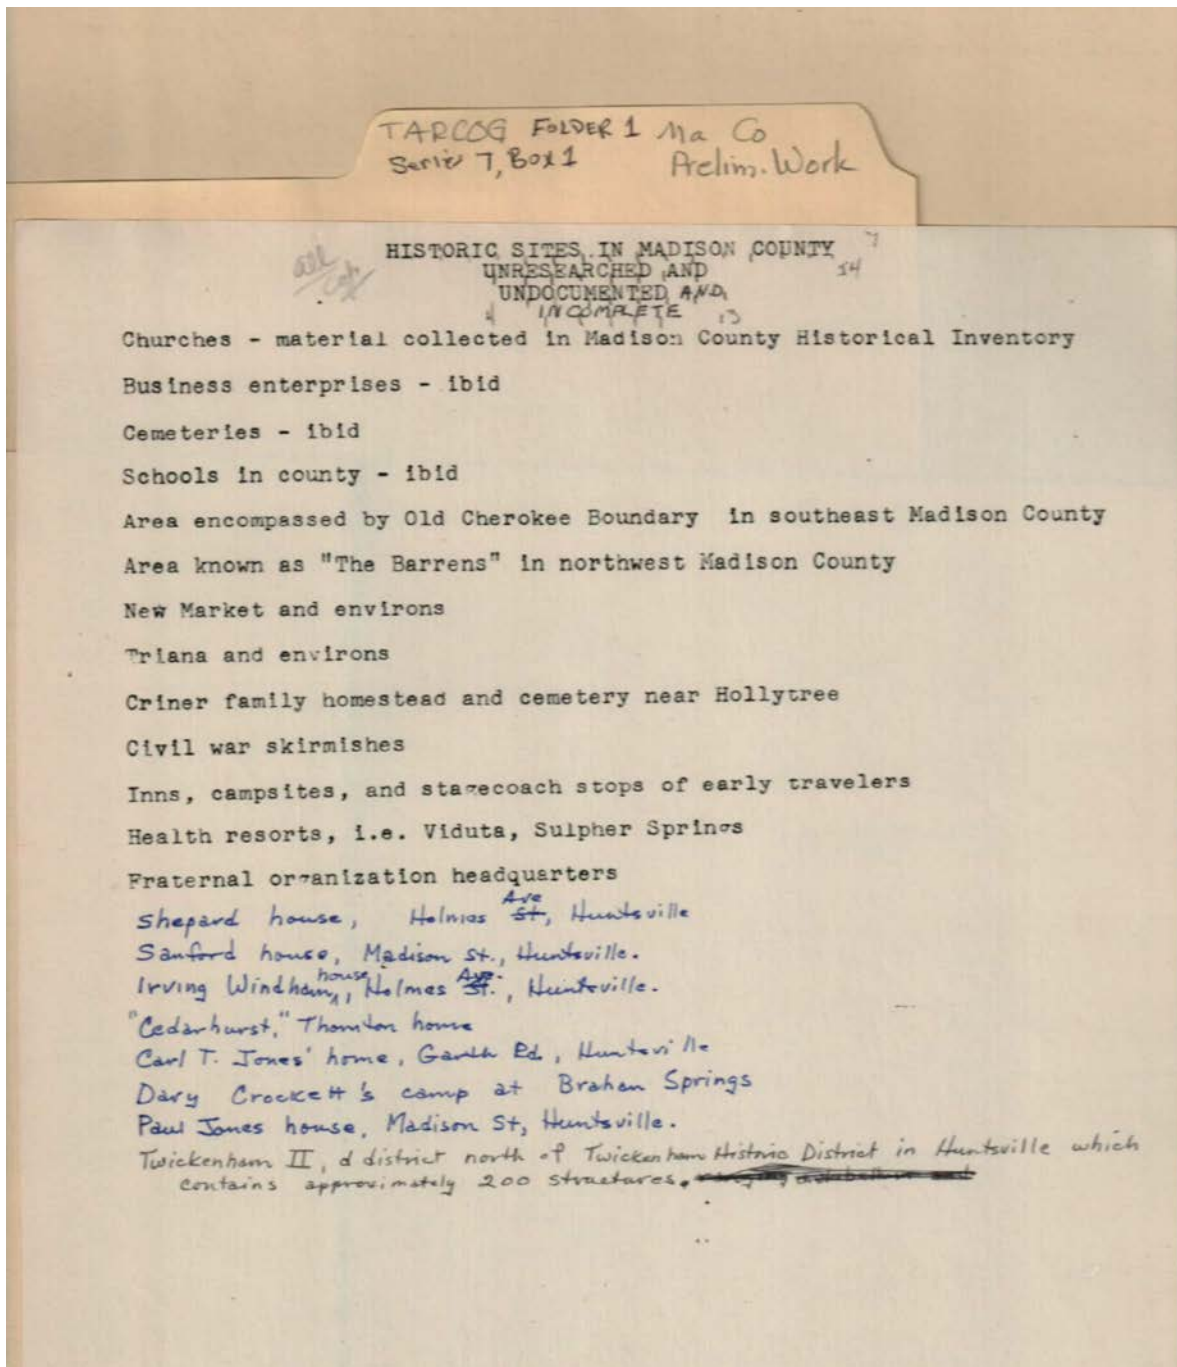 TARCOG FOLDER 1 Ma Co
Series 7, Box 1 Prelim. Work
HISTORIC SITES IN MADISON COUNTY
UNRESEARCHED AND
UNDOCUMENTED AND
INCOMPLETE
Churches - material collected in Madison County Historical Inventory
Business enterprises - ibid
Cemeteries - ibid
Schools in county - ibid
Area encompassed by Old Cherokee Boundary in southeast Madison County
Area known as "The Barrens" in northwest Madison County
New Market and environs
Triana and environs
Criner family homestead and cemetery near Hollytree
Civil war skirmishes
Inns, campsites, and stagecoach stops of early travelers
Health resorts, i.e. Viduta, Sulpher Springs
Fraternal organization headquarters
Shepard house, Holmes St Ave, Huntsville
Sanford house, Madison St., Huntsville.
Irving Windham house, Holmes St. Ave., Huntsville.
"Cedarhurst," Thornton home
Carl T. Jones' home, Garth Rd, Huntsville
Davy Crockett's camp at Brahan Springs
Paul Jones house, Madison St, Huntsville.
Twickenham II, a district north of Twickenham Historic District in Huntsville which
contains approximately 200 structures.